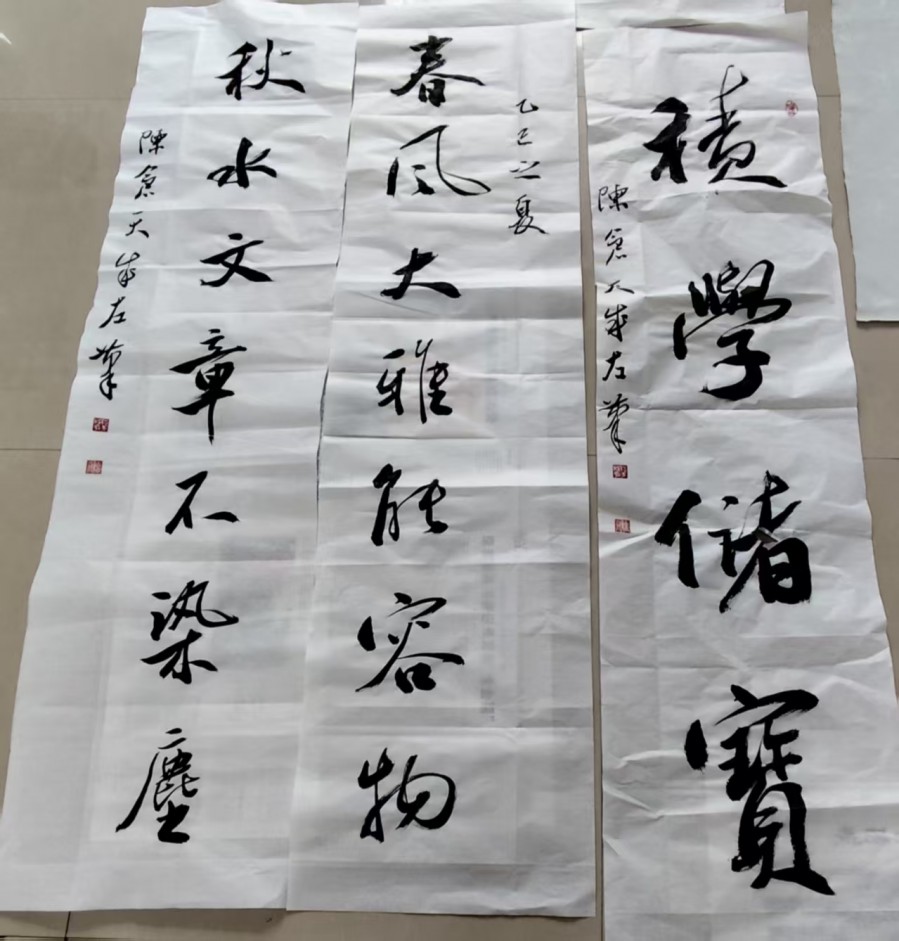 積學儲寶
陳倉天成左筆
乙巳之夏
春風大雅能容物
秋水文章不染塵
陳倉天成左筆